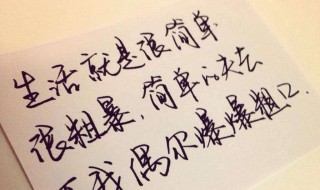 生活就是很简单
很粗暴，简单的失去
我偶尔爆爆粗口.